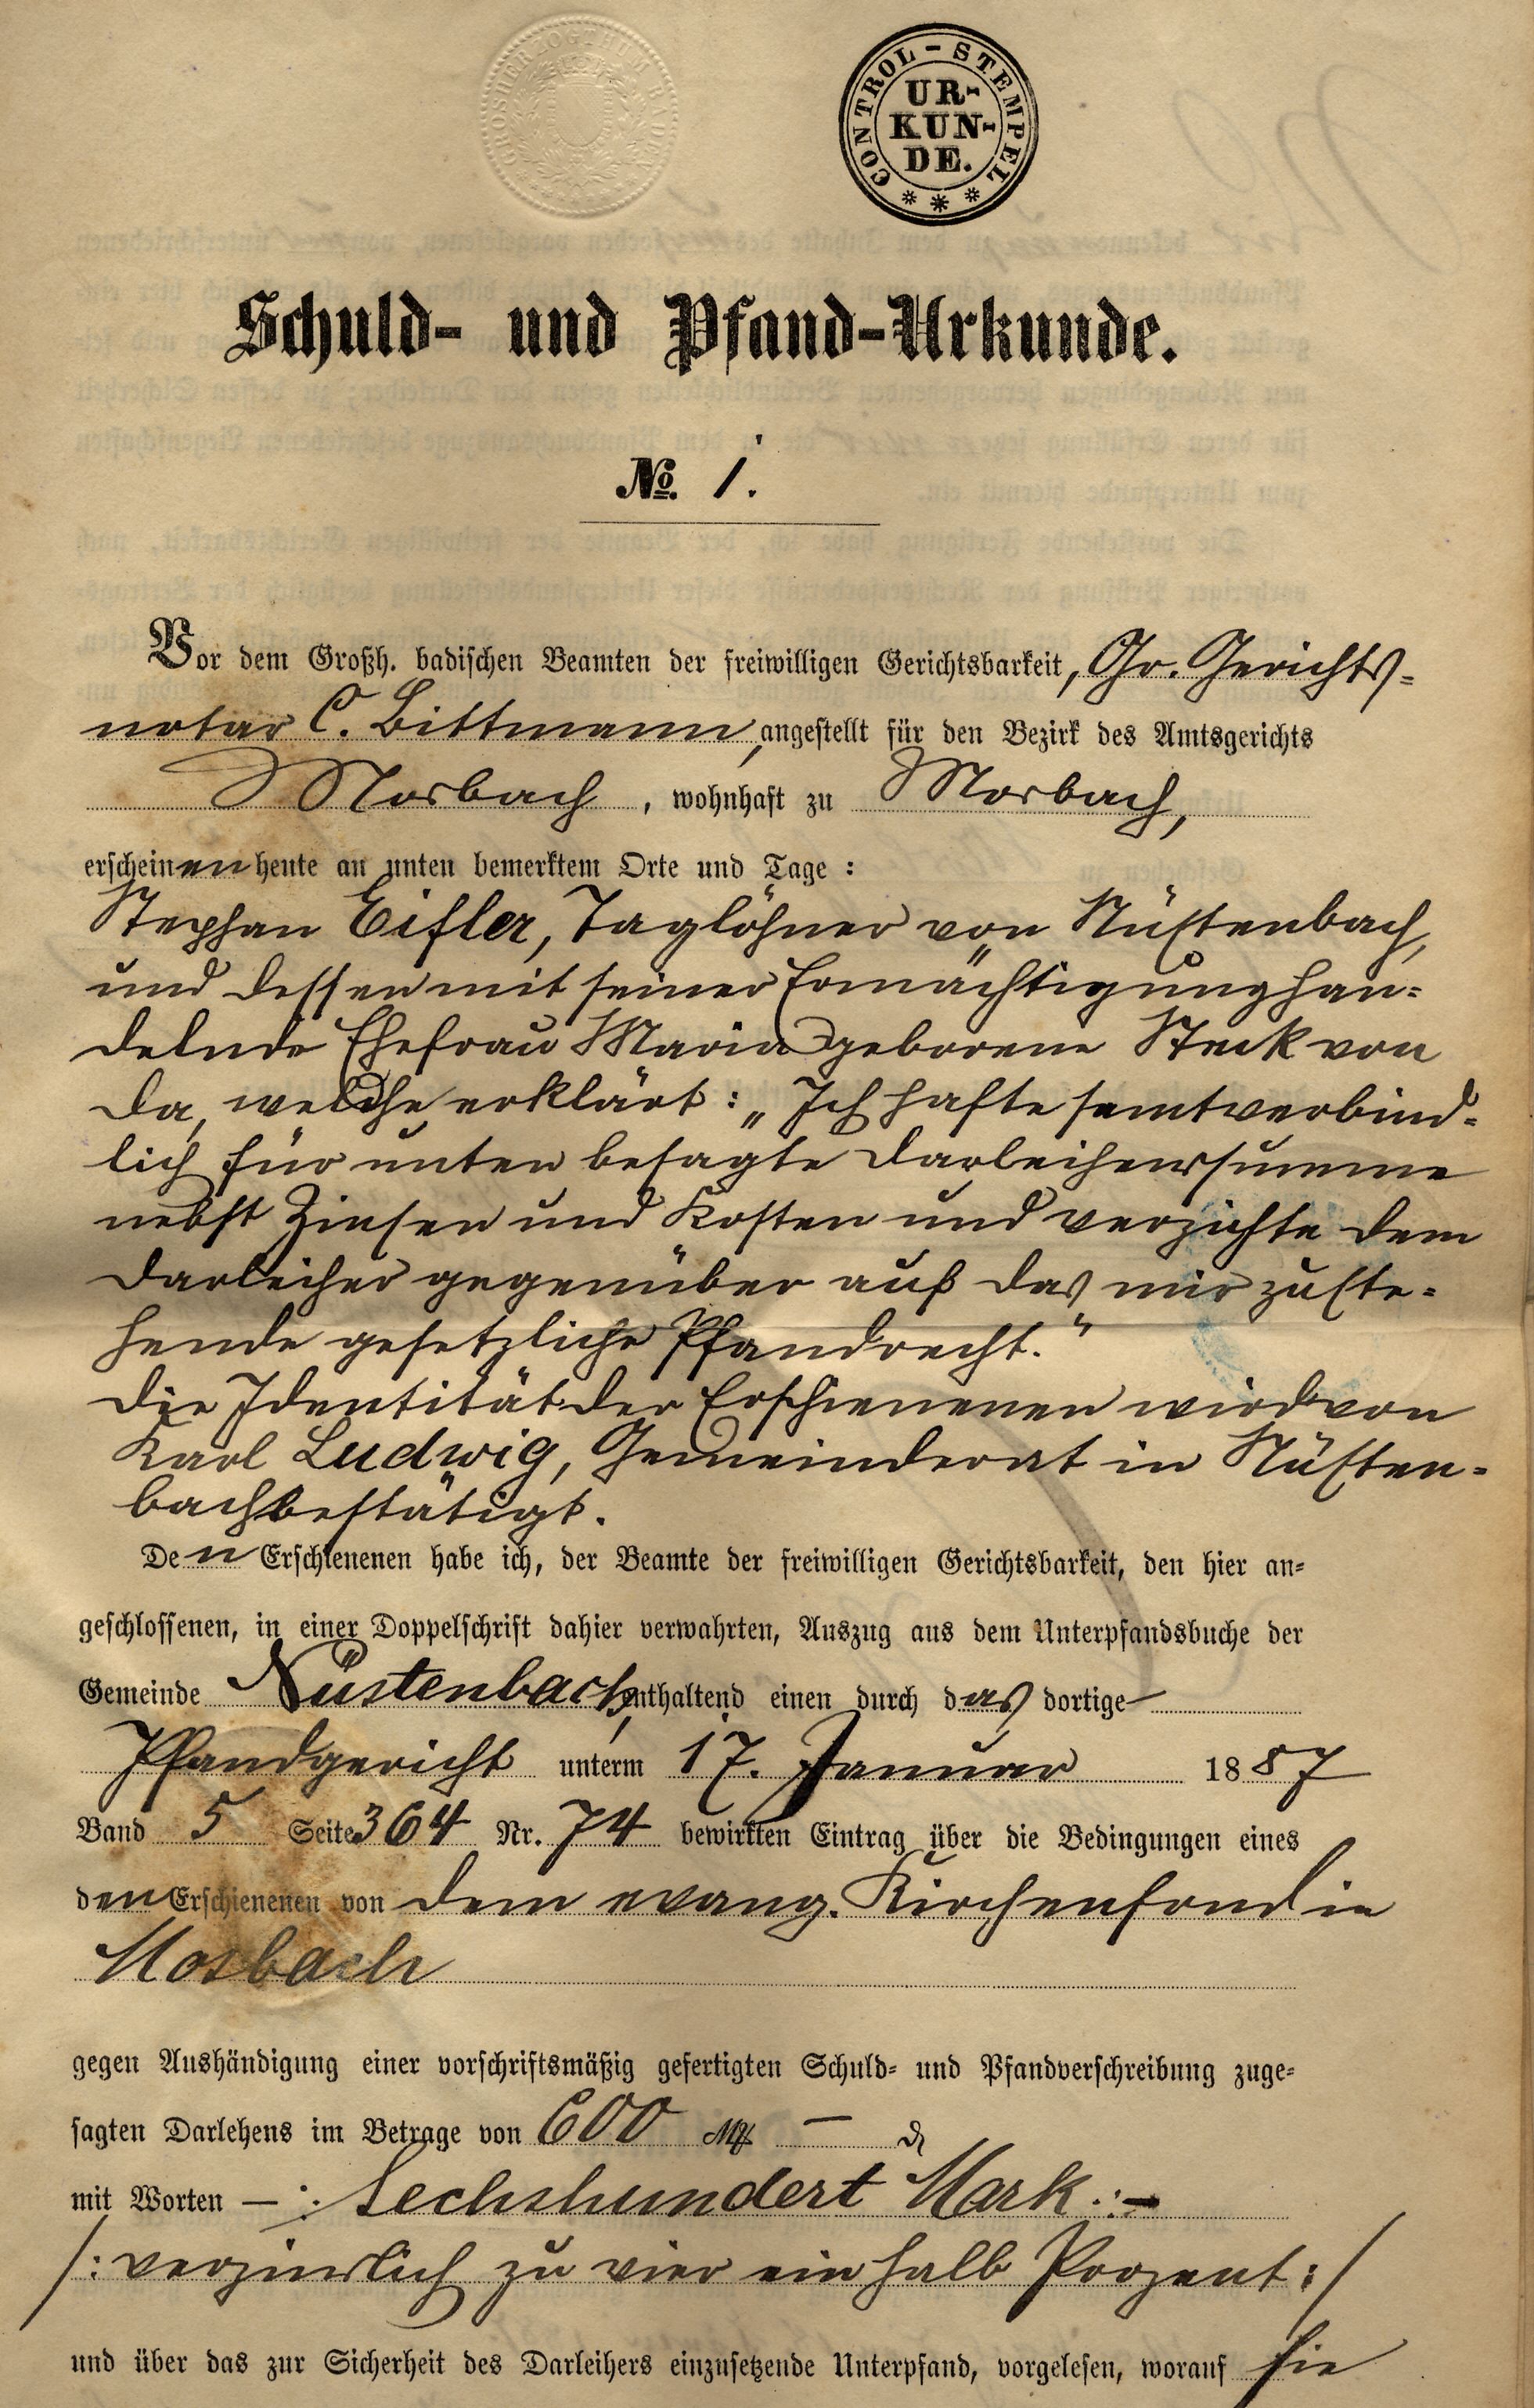 GROSHERZOGTHUM BADEN
CONTROL-STEMPEL
UR-
KUN-
DE.
Schuld- und Pfand-Urkunde.
No. 1.
Vor dem Großh. badischen Beamten der freiwilligen Gerichtsbarkeit, Gr. Gerichts-
notar C. Bittmann, angestellt für den Bezirk des Amtsgerichts
Mosbach, wohnhaft zu Mosbach,
erscheinen heute an unten bemerktem Orte und Tage:
Stephan Eifler, Taglöhner von Nüstenbach,
und dessen mit seiner Ermächtigung han-
delnde Ehefrau Maria geborene Steck von
da, welche erklärt: „Ich hafte samtverbind-
lich für unten besagte Darleihenssumme
nebst Zinsen und Kosten und verzichte dem
Darleiher gegenüber auf das mir zuste-
hende gesetzliche Pfandrecht."
Die Identität der Erschienenen wird von
Karl Ludwig, Gemeinderat in Nüsten-
bach bestätigt.
Den Erschienenen habe ich, der Beamte der freiwilligen Gerichtsbarkeit, den hier an-
geschlossenen, in einer Doppelschrift dahier verwahrten, Auszug aus dem Unterpfandsbuche der
Gemeinde Nüstenbach, enthaltend einen durch das dortige
Pfandgericht unterm 17. Januar 1887
Band 5 Seite 364 Nr. 74 bewirkten Eintrag über die Bedingungen eines
den Erschienenen von dem evang. Kirchenfond in
Mosbach
gegen Aushändigung einer vorschriftsmäßig gefertigten Schuld- und Pfandverschreibung zuge-
sagten Darlehens im Betrage von 600 M — ₰
mit Worten —: Sechshundert Mark :—
/: verzinslich zu vier ein halb Prozent :/
und über das zur Sicherheit des Darleihers einzusetzende Unterpfand, vorgelesen, worauf sie